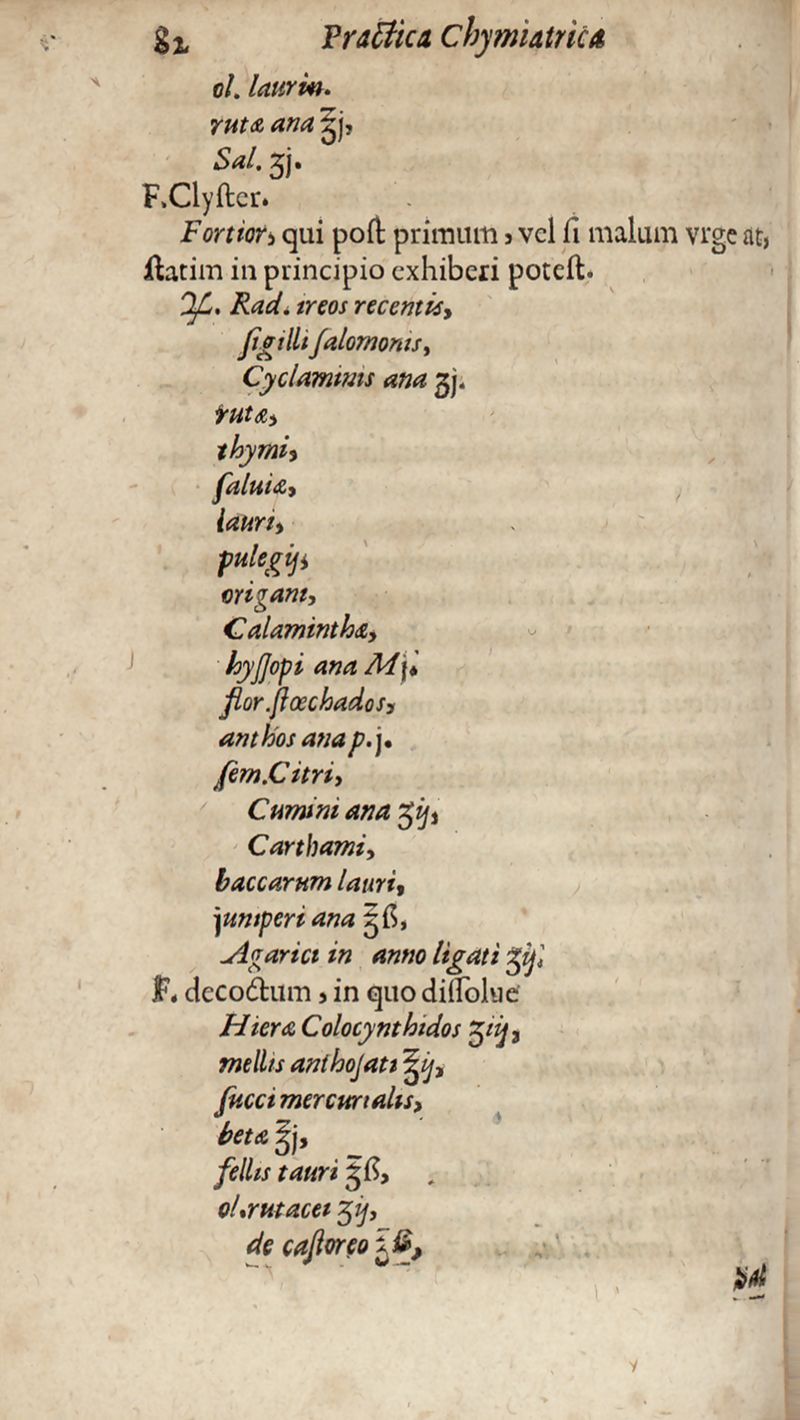 82 Practica Chymiatrica
ol. laurin.
rutæ ana ℥j,
Sal. ʒj.
F. Clyſter.
Fortior, qui poſt primum, vel ſi malum vrgeat,
ſtatim in principio exhiberi poteſt.
♃. Rad. ireos recentis,
ſigilli ſalomonis,
Cyclaminis ana ʒj.
rutæ,
thymi,
ſaluiæ,
lauri,
pulegij,
origani,
Calaminthæ,
hyſſopi ana Mj.
flor. ſtœchados,
anthos ana p.j.
ſem. Citri,
Cumini ana ʒij,
Carthami,
baccarum lauri,
juniperi ana ℥ß,
Agarici in anno ligati ʒij.
F. decoctum, in quo diſſolue
Hieræ Colocynthidos ʒiij,
mellis anthoſati ℥ij,
ſucci mercurialis,
betæ ℥j,
fellis tauri ℥ß,
ol. rutacei ʒij,
de caſtoreo ℥ß,
Sal